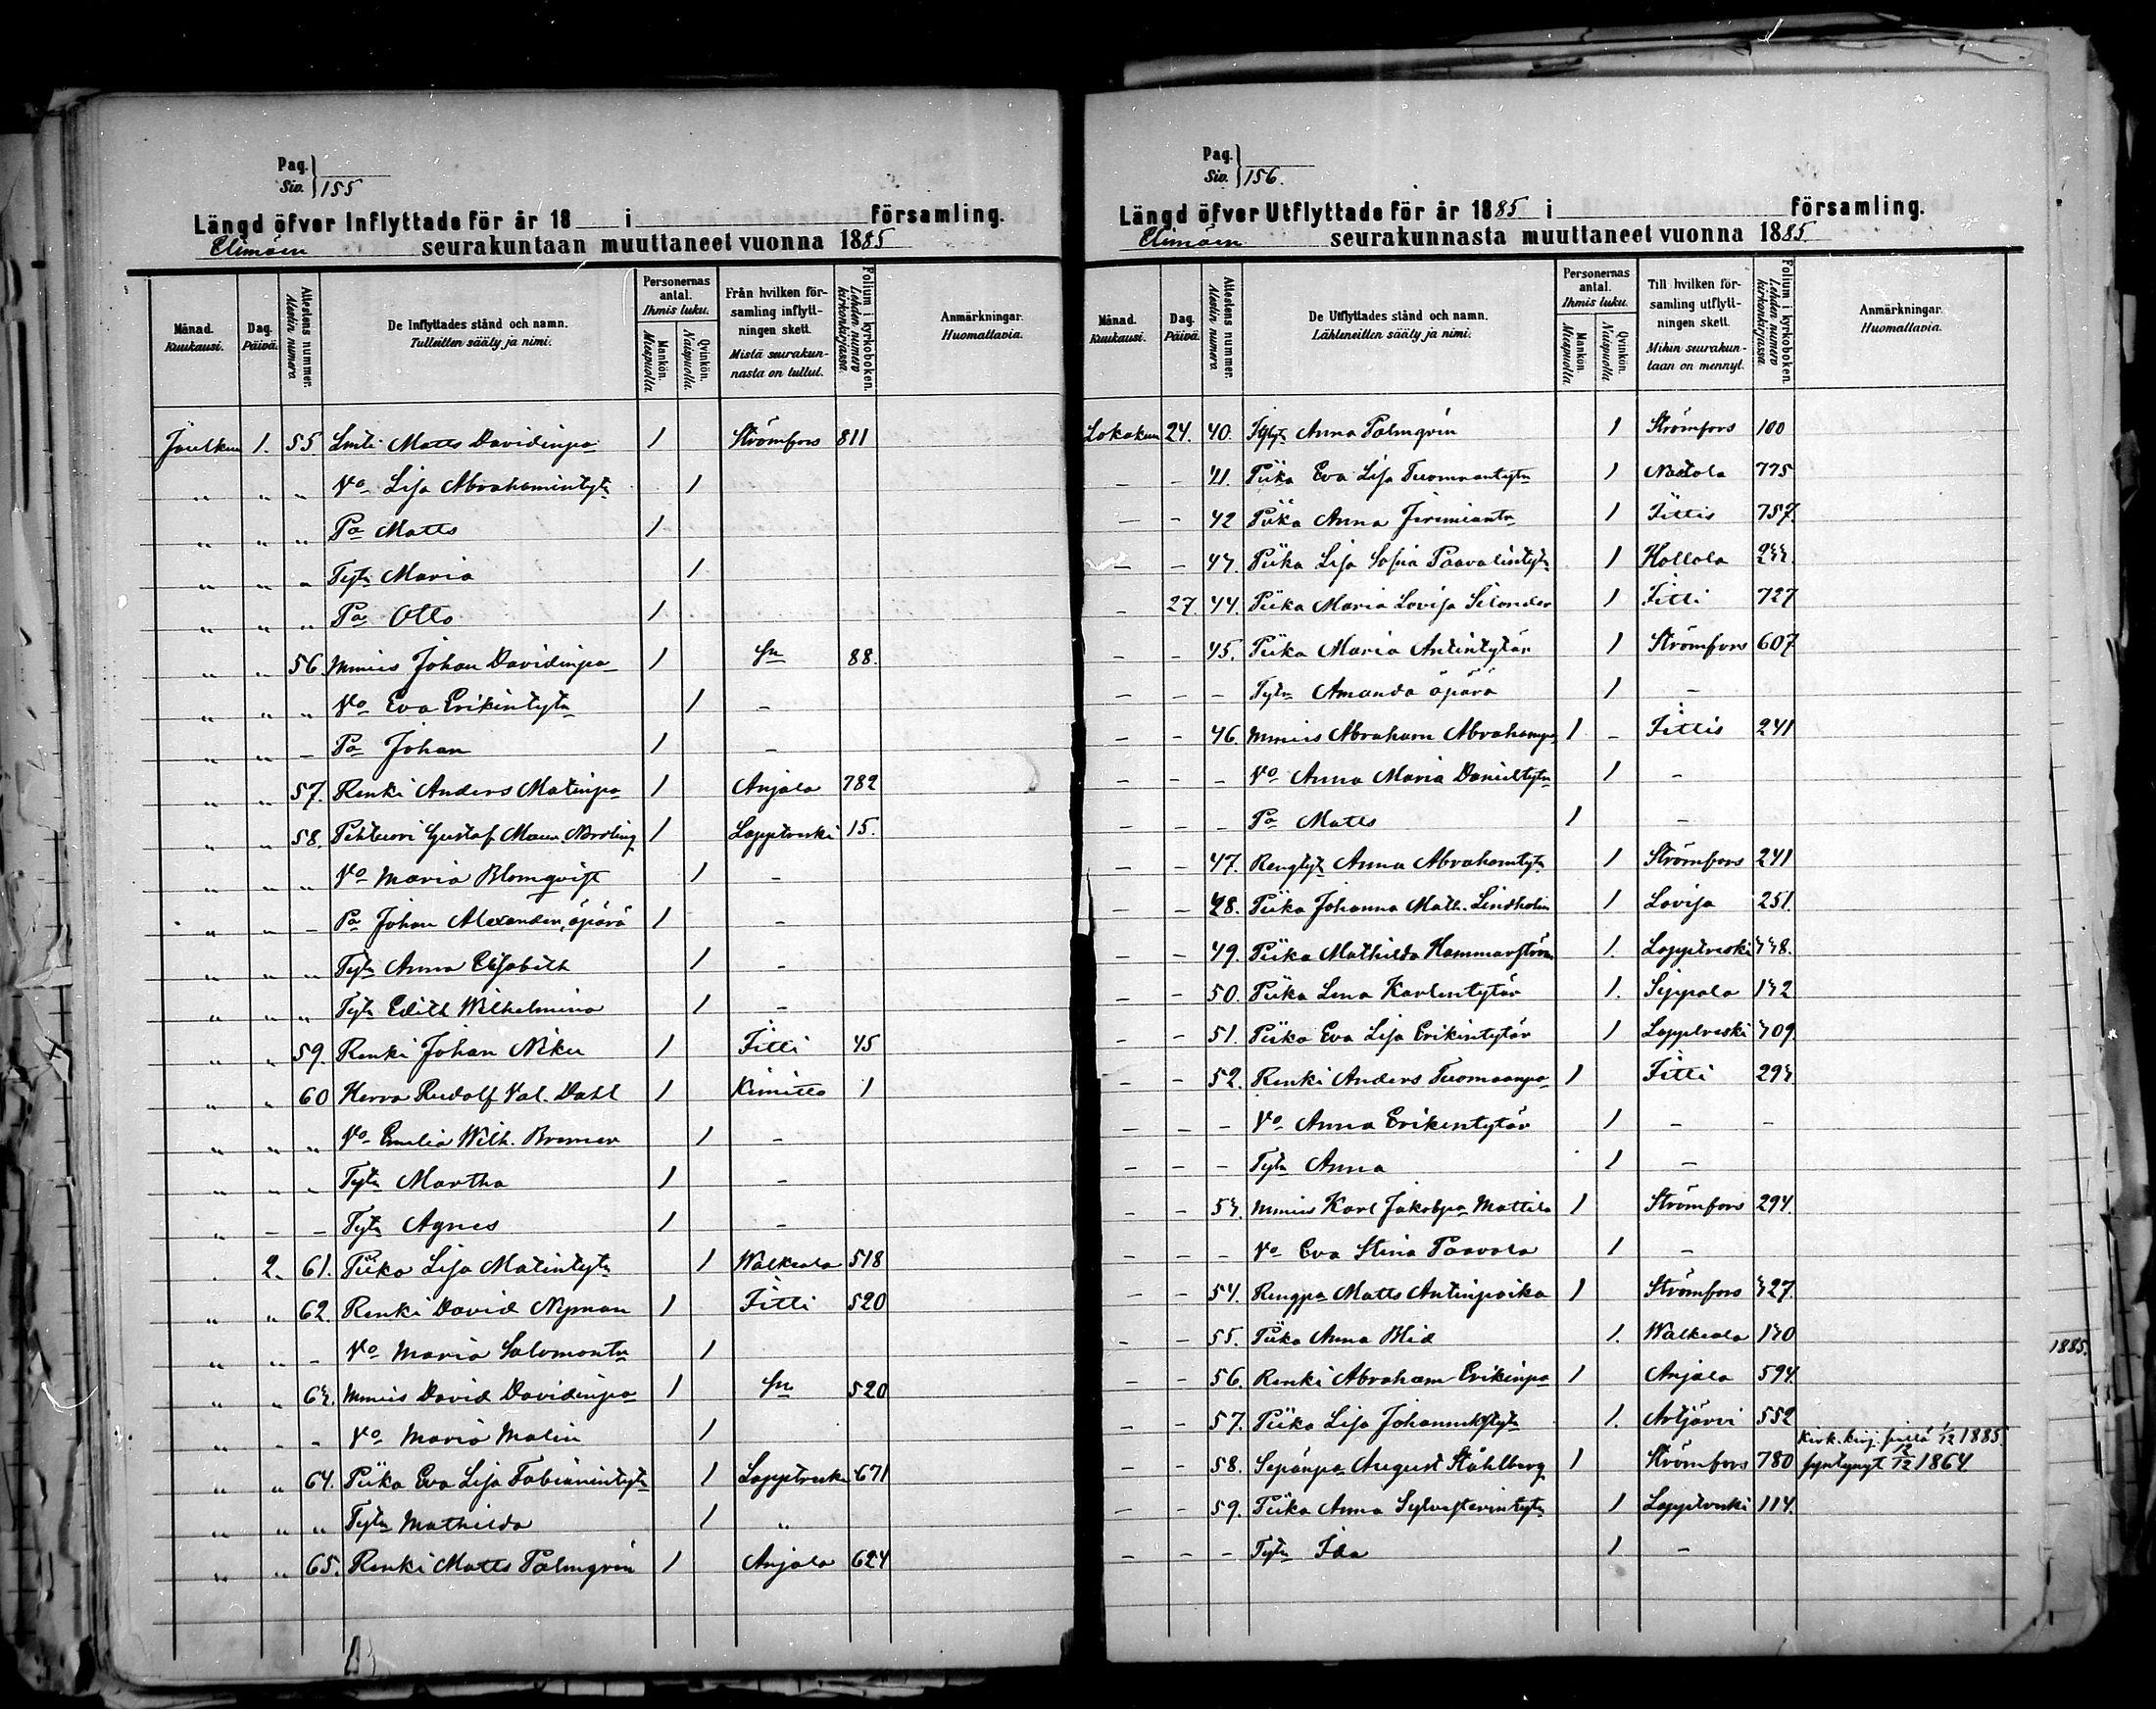 Pag.
Siv. 155
Längd öfver Inflyttade för år 18 i församling.
Elimäen seurakuntaan muuttaneet vuonna 1885
Månad. Kuukausi.
Dag. Päivä.
Attestens nummer. Alestin numero.
De Inflyttades stånd och namn. Tulleitten sääty ja nimi.
Personernas antal. Ihmis luku.
Mankön. Miespuolia.
Qvinkön. Naispuolia.
Från hvilken församling inflyttningen skett. Mistä seurakunnasta on tullut.
Folium i kyrkoboken. Lehden numero kirkonkirjassa.
Anmärkningar. Huomattavia.
Joulkuu 1. 55 Matts Davidinpa 1 Strömfors 811
" " " Vo Lisa Abrahamintytr 1
" " " Pa Matts 1
" " " Tytr Maria 1
" " " Pa Otto 1
" " 56 Mmies Johan Davidinpa 1 Sm 88.
" " " Vo Eva Erikintytr 1 -
" " - Pa Johan 1 -
" " 57. Renki Anders Matinpa 1 Anjala 782
" " 58. Gustaf Maur. Nordling 1 Lappträski 15.
" " " Vo Maria Blomqvist 1 -
" " - Pa Johan Alexander, äpärä 1 -
" " " Tytr Anna Elisabeth 1 -
" " " Tytr Edith Wilhelmina 1 -
" " 59. Renki Johan Niku 1 Iitti 45
" " 60 Herra Rudolf Val. Dahl 1 Kimitto 1
" " " Vo Emelia Wilh. Bremer 1 -
" " " Tytr Martha 1 -
" - - Tytr Agnes 1 -
2. 61. Piika Lisa Matintytr 1 Walkeala 518
" " 62. Renki David Nyman 1 Iitti 520
" " - Vo Maria Salomontr 1
" " 63. Mmies David Davidinpa 1 Sm 520
" - - Vo Maria Malin 1
" " 64. Piika Eva Lisa Fabianintytr 1 Lappträski 671
" " " Tytr Mathilda 1 "
" " 65. Renki Matts Palmqvin 1 Anjala 624
Pag.
Siv. 156.
Längd öfver Utflyttade för år 1885 i församling.
Elimäen seurakunnasta muuttaneet vuonna 1885.
Månad. Kuukausi.
Dag. Päivä.
Attestens nummer. Alestin numero.
De Utflyttades stånd och namn. Lähteneitten sääty ja nimi.
Personernas antal. Ihmis luku.
Mankön. Miespuolia.
Qvinkön. Naispuolia.
Till hvilken församling utflyttningen skett. Mihin seurakuntaan on mennyt.
Folium i kyrkoboken. Lehden numero kirkonkirjassa.
Anmärkningar. Huomattavia.
Lokakuu 24. 40. Anna Palmqvin 1 Strömfors 100
- - 41. Piika Eva Lisa Tuomaantytr 1 Nastola 775
- - 42 Piika Anna Jeremiantr 1 Iittis 757.
- - 43. Piika Lisa Sofia Paavalintytr 1 Hollola 233.
- 27. 44. Piika Maria Lovisa Silander 1 Iitti 727
- - 45. Piika Maria Antintytär 1 Strömfors 607
- - - Tytr Amanda äpärä 1 -
- - 46. Mmies Abraham Abrahampa 1 - Iittis 241
- - - Vo Anna Maria Danieltytr 1 -
- - - Pa Matts 1 -
- - 47. Rengtytr Anna Abrahamtytr 1 Strömfors 241
- - 48. Piika Johanna Math. Lindholm 1 Lovisa 251.
- - 49. Piika Mathilda Hammarström 1. Lappträski 338.
- - 50. Piika Lena Karlentytär 1. Sippola 132
- - 51. Piika Eva Lisa Erikintytär 1 Lappträski 309.
- - 52. Renki Anders Tuomaanpa 1 Iitti 293
- - - Vo Anna Erikintytär 1 - -
- - - Tytr Anna 1 -
- - 53. Mmies Karl Jakobpa Mattila 1 Strömfors 294.
- - - Vo Eva Stina Paavola 1 -
- - 54. Rengpa Matts Antinpoika 1 Strömfors 327.
- - 55. Piika Anna Blid 1. Walkeala 130
- - 56. Renki Abraham Erikinpa 1 Anjala 594.
- - 57. Piika Lisa Johanneksentytr 1. Artjärvi 552
- - 58. Sepänpa August Ståhlberg 1 Strömfors 780 kirk. kirj. 1/12 1885. syntynyt 12/12 1864.
- - 59. Piika Anna Sylvesterintytr 1 Lappträski 114.
- - - Tytr Ida 1 -
1885.